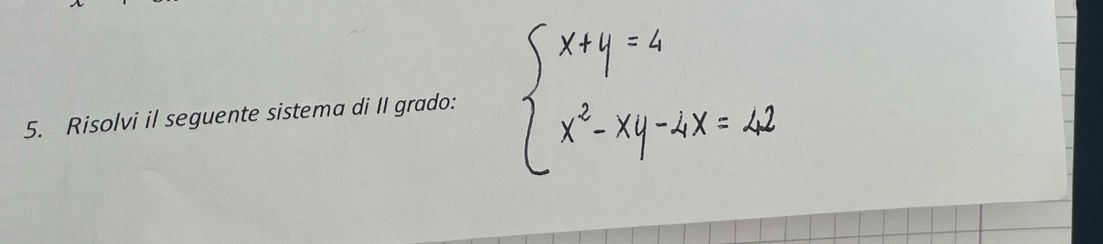 x + y = 4
5. Risolvi il seguente sistema di II grado:
x² - xy - 4x = 42